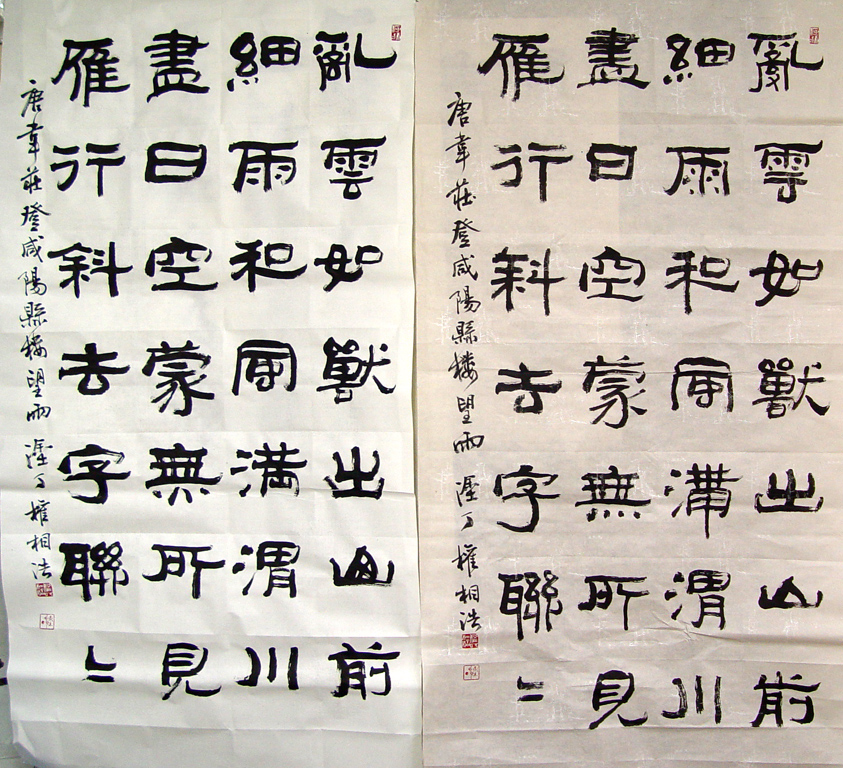 亂雲如獸出山前
細雨和風滿渭川
盡日空蒙無所見
雁行斜去字聯〻
唐韋莊登咸陽縣樓望雨 塗丁 權相浩
亂雲如獸出山前
細雨和風滿渭川
盡日空蒙無所見
雁行斜去字聯〻
唐韋莊登咸陽縣樓望雨 塗丁 權相浩